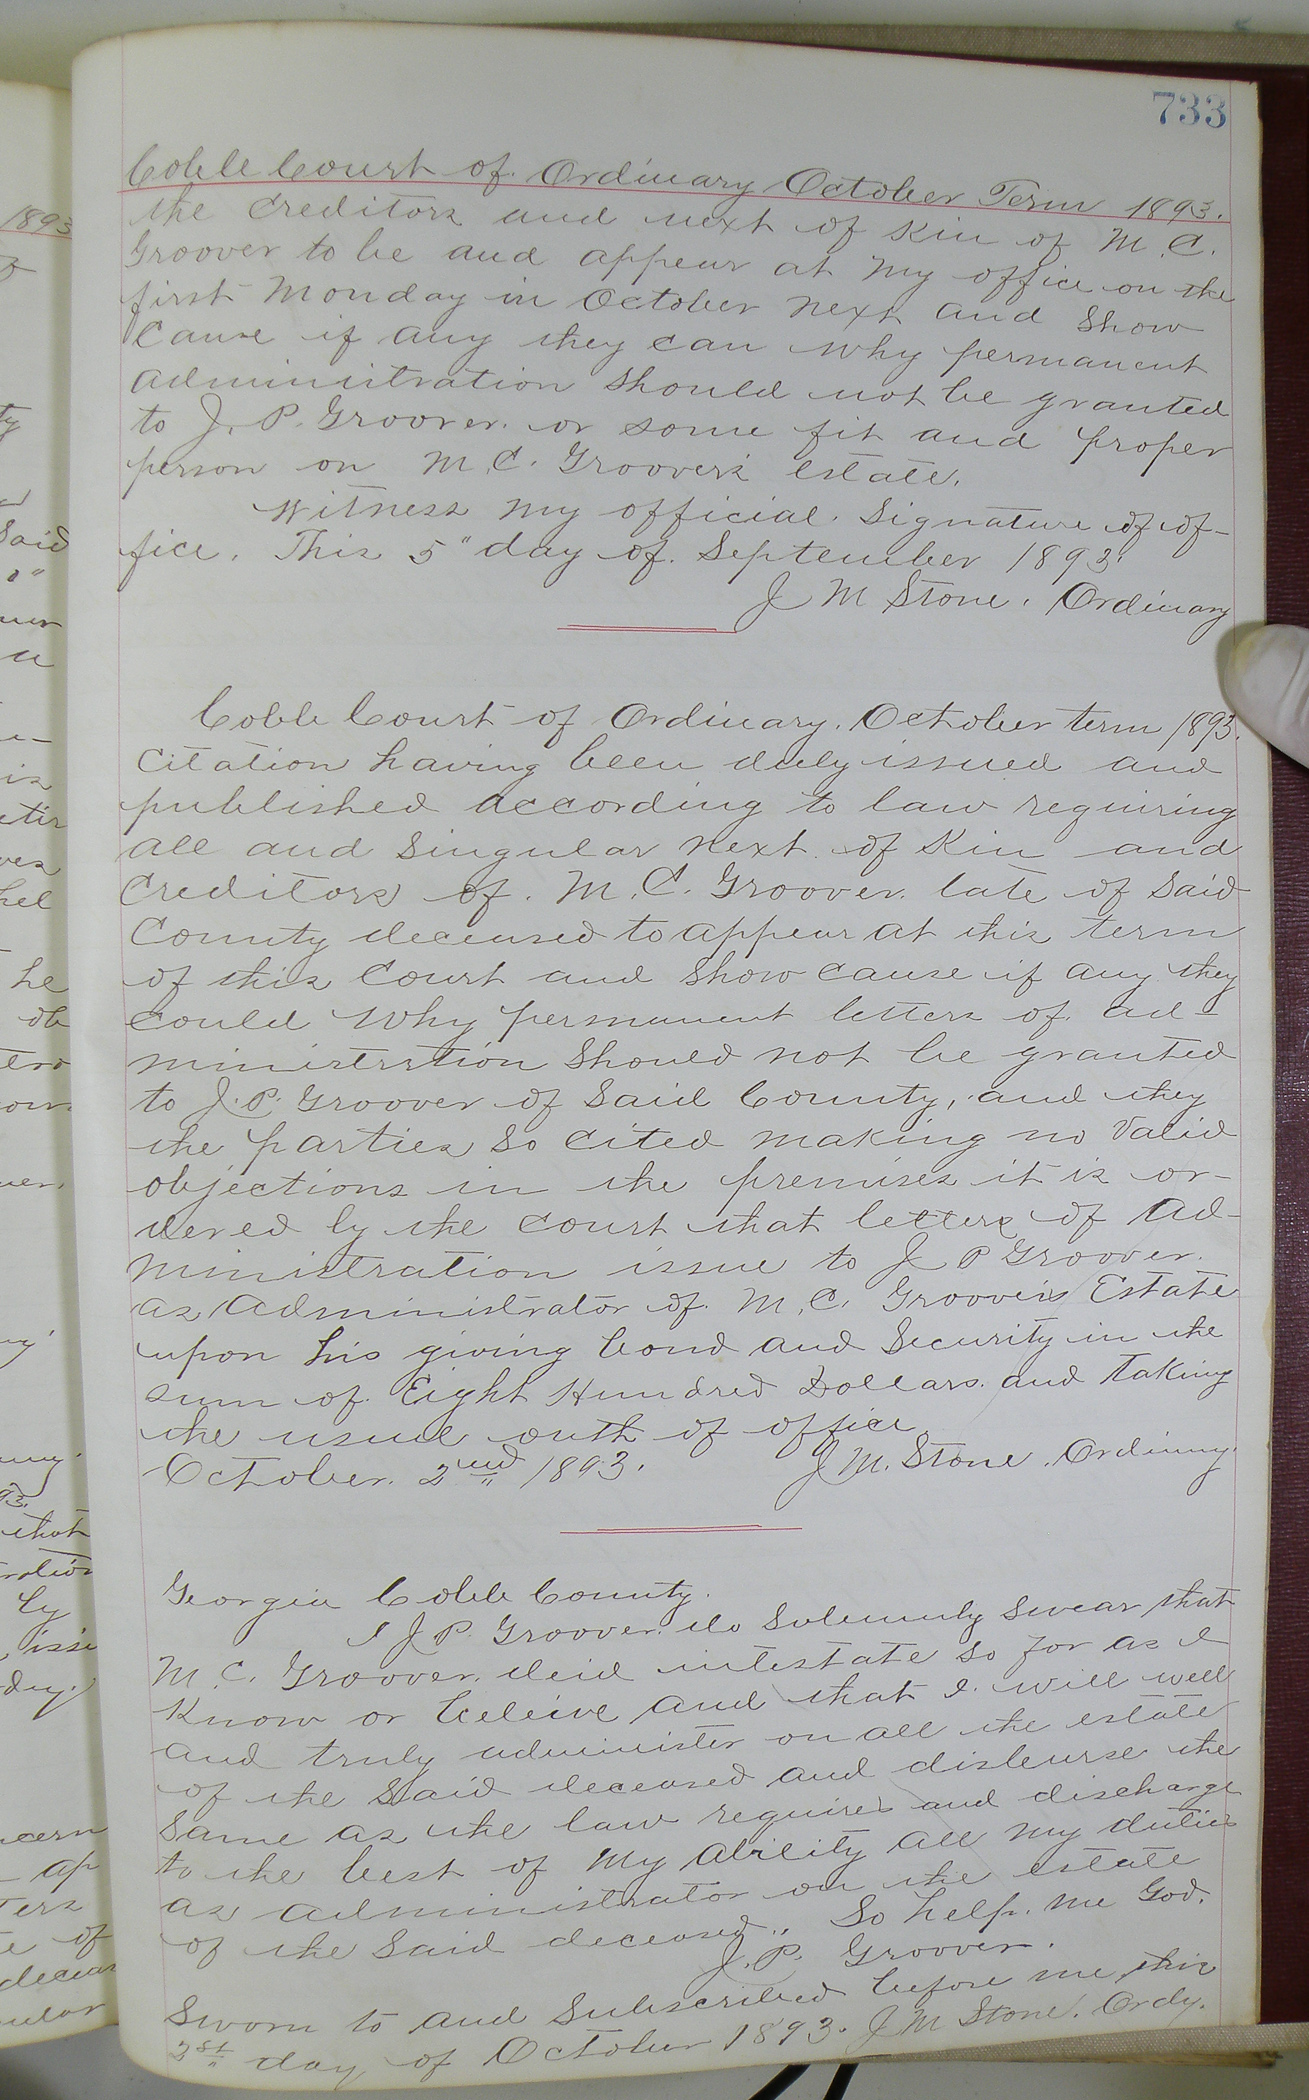 733
Cobb Court of Ordinary October Term 1893.
the creditors and next of Kin of M. C.
Groover to be and appear at my office on the
first Monday in October next and show
cause if any they can why permanent
administration should not be granted
to J. P. Groover. or some fit and proper
person on M. C. Groover's estate.
Witness my official signature of of-
fice. This 5" day of September 1893.
J M Stone. Ordinary
Cobb Court of Ordinary. October term 1893.
Citation having been duly issued and
published according to law requiring
all and singular next of Kin and
Creditors of M. C. Groover late of said
County deceased to appear at this term
of this Court and show cause if any they
could why permanent letters of ad-
ministration should not be granted
to J. P. Groover of said County, and they
the parties so cited making no valid
objections in the premises it is or-
dered by the Court that letters of Ad-
ministration issue to J P Groover.
as Administrator of M. C. Groover's Estate
upon his giving bond and security in the
sum of Eight Hundred Dollars and taking
the usual outh of office
October. 2nd 1893. J. M. Stone. Ordinary.
Georgia Cobb County.
I J P. Groover. do solemnly swear that
M. C. Groover. deid intestate so far as I
Know or beleive and that I will well
and truly administer on all the estate
of the said deceased and disburse the
same as the law requires and discharge
to the best of my ability all my duties
as administrator on the estate
of the said deceased. So help me God.
J. P. Groover.
Sworn to and subscribed before me this
2st day of October 1893. J M Stone. Ordy.
1893
ty
said
he
that
by
of